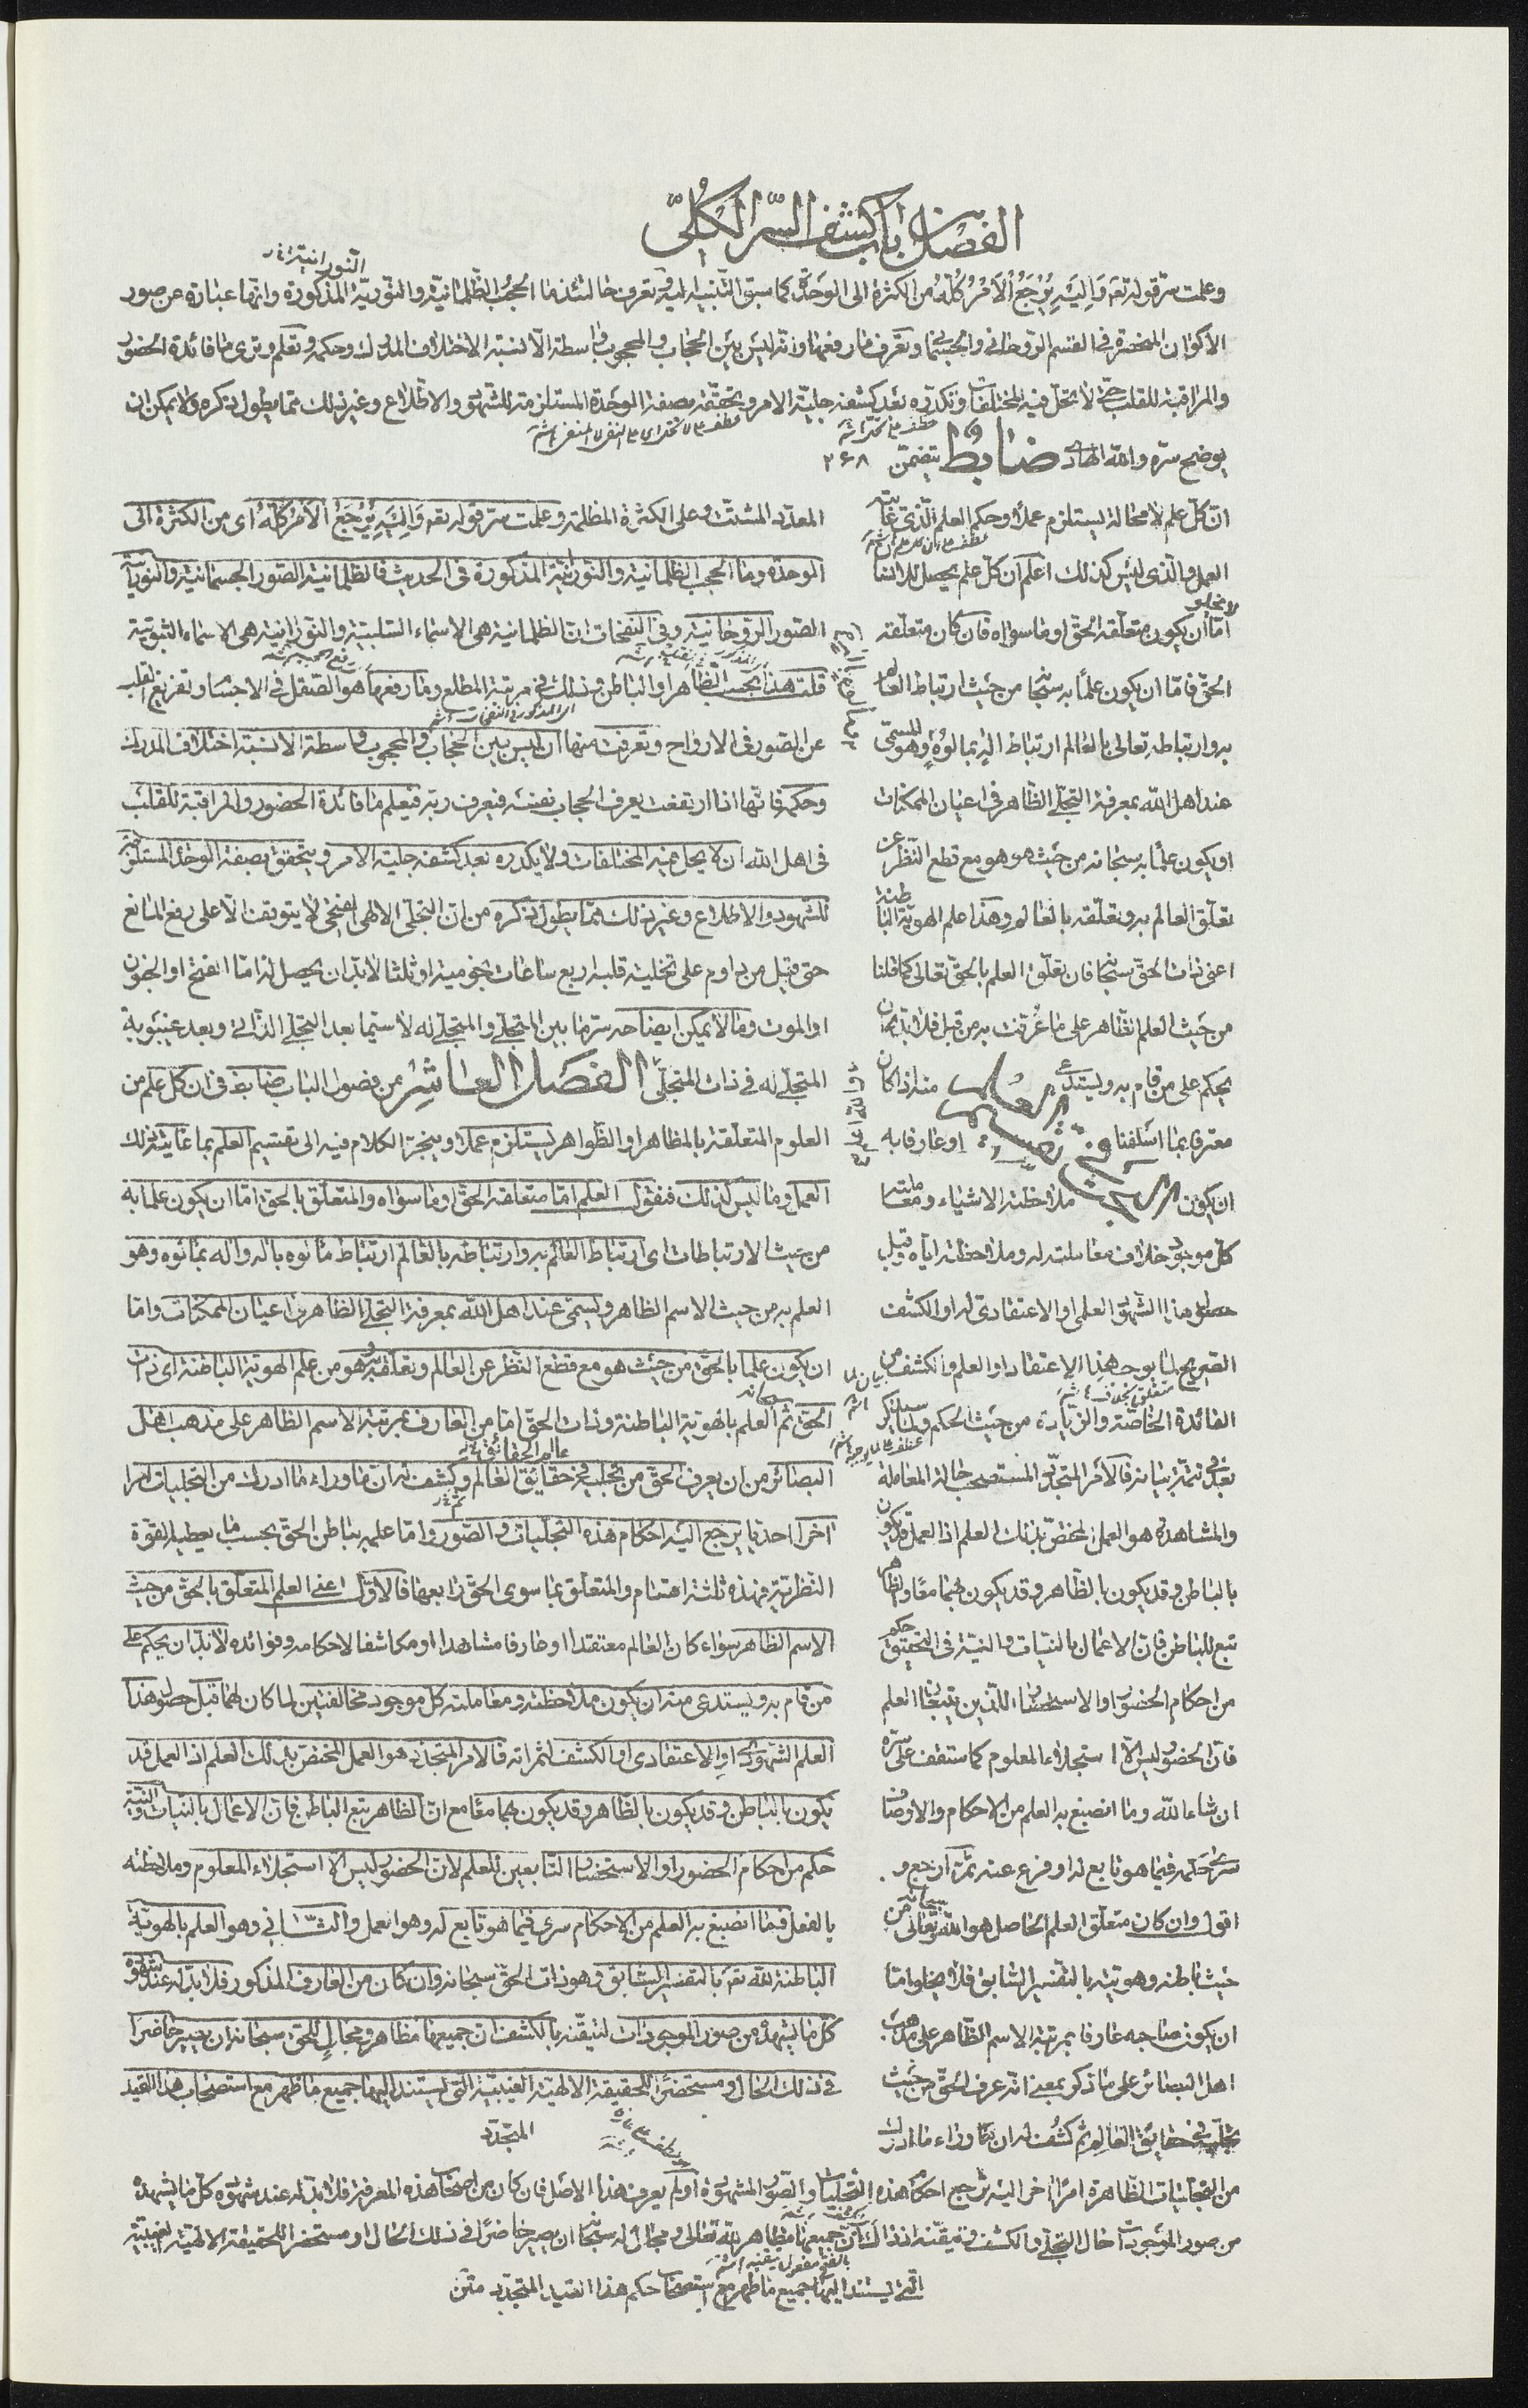 الفصل باب كشف السر الكلى
وعلمت سر قوله تعه وَاِلَيْهِ يُرْجَعُ الْاَمْرُ كُلُّهُ من الكثرة الى الوحدة كما سبق التنبيه اليه وتعرف حالتئذ ما الحجب الظلمانية والنورية المذكورة وانها عبارة عن صور
النورانية
الاكوان المنحصرة فى القسم الروحانى والجسمانى وتعرف ما رفعها وانه ليس بين الحجاب والمحجوب واسطة الا نسبة الاختلاف المدرك وحكمه وتعلم وترى ما فائدة الحضور
والمراقبة للقلب حتى لا تحل فيه المختلفات وتكدره بعد كشفه جلية الامر وتحققه بصفة الوحدة المستلزمة للشهود والاطلاع وغير ذلك مما يطول ذكره ولا يمكن ان
يوضح سره والله الهادى ضابط يتضمن ٢٦٨
ان كل علم لا محالة يستلزم عملا وحكم العلم الذى غايته
العمل والذى ليس كذلك اعلم ان كل علم يحصل للانسان
لا يخلو
اما ان يكون متعلقه الحق او ما سواه فان كان متعلقه
الحق فاما ان يكون علما به سبحانه من حيث ارتباط العالم
به وارتباطه تعالى بالعالم ارتباط اله بمالوه وهو المسمى
عند اهل الله بمعرفة التجلى الظاهر فى اعيان الممكنات
او يكون علما به سبحانه من حيث هو هو مع قطع النظر عن
تعلق العالم به وتعلقه بالعالم وهذا علم الهوية الباطنة
اعنى ذات الحق سبحانه فان تعلق العلم بالحق تعالى كما قلنا
من حيث العلم الظاهر على ما عرفت به من قبل فلا بد ان
يحكم على من قام به ويستدعى منه اذا كان
معترفا بما اسلفنا او عارفا به
ان يكون ملاحظته الاشياء ومعاملته
كل موجود خلاف معاملته له وملاحظته اياه قبل
حصول هذا الشهود العلمى او الاعتقادى له او الكشف
الصريح لما يوجب هذا الاعتقاد او العلم والكشف من
الفائدة الخاصة والزيادة من حيث الحكم
بعد فى تتمة بيانه فالامر المتجدد المستصحب حالة المعاملة
والمشاهدة هو العمل المختص بذلك العلم اذ العمل قد يكون
بالباطن وقد يكون بالظاهر وقد يكون بهما معا والظاهر
تبع للباطن فان الاعمال بالنيات والنية فى التحقيق حكم
من احكام الحضور او الاستحضار اللذين يتبعان العلم
فان الحضور ليس الا استجلاء المعلوم كما ستقف على سره
ان شاء الله وما انصبغ به العلم من الاحكام والاوصاف
سرى حكمه فيما هو تابع له او فرع عنه ثمرة ارجع و
اقول وان كان متعلق العلم الحاصل هو الله سبحانه وتعالى من
حيث باطنه وهويته بالتفسير السابق فلا يخلو اما
ان يكون صاحبه عارفا بمرتبة الاسم الظاهر على مذهب
اهل البصائر على ما ذكر بمعنى انه عرف الحق من حيث
تجليه فى حقايق العالم ثم كشف له ان بما وراء ما ادرك
المعدد المشتت وعلى الكثرة المظلمة وعلمت سر قوله تعه وَاِلَيْهِ يُرْجَعُ الْاَمْرُ كُلُّهُ اى من الكثرة الى
الوحدة وما الحجب الظلمانية والنورانية المذكورة فى الحديث فالظلمانية الصور الجسمانية والنورانية
الصور الروحانية وفى النفحات ان الظلمانية هى الاسماء السلبية والنورانية هى الاسماء الثبوتية
قلت هذا بحسب الظاهر والباطن وذلك فى مرتبة المطلع وما رفعها هو الصقل فى الاجساد وتفريغ القلب
عن الصور فى الارواح وتعرفت منها ان ليس بين الحجاب والمحجوب واسطة الا نسبة اختلاف المدرك
وحكمه فانها اذا ارتفعت يعرف الحجاب نفسه فيعرف ربه فيعلم ما فائدة الحضور والمراقبة للقلب
فى اهل الله ان لا يحل فيه المختلفات ولا يكدره بعد كشفه جلية الامر ويتحقق بصفة الوحدة المستلزمة
للشهود والاطلاع وغير ذلك مما يطول ذكره من ان التجلى الالهى الفتحى لا يتوقف الا على رفع المانع
حتى قيل من داوم على تخلية قلبه اربع ساعات نجومية او ثلثا لا بد ان يحصل له اما الفتح او الجنون
او الموت وما لا يمكن ايضاحه سر ما بين المتجلى والمتجلى له لا سيما بعد التجلى الذاتى وبعد غيبوبة
المتجلى له فى ذات المتجلى الفصل العاشر من فصول الباب ضابط فى ان كل علم من
العلوم المتعلقة بالمظاهر او الظواهر يستلزم عملا وينجر الكلام فيه الى تقسيم العلم بما غايته ذلك
العمل وما ليس كذلك فنقول العلم اما متعلقه الحق او ما سواه والمتعلق بالحق اما ان يكون علما به
من حيث الارتباطات اى ارتباط العالم به وارتباطه بالعالم ارتباط مألوه باله واله بمألوه وهو
العلم به من حيث الاسم الظاهر ويسمى عند اهل الله بمعرفة التجلى الظاهر فى اعيان الممكنات واما
ان يكون علما بالحق من حيث هو مع قطع النظر عن العالم وتعلقه به وهو من علم الهوية الباطنة اى ذات
الحق ثم العلم بالهوية الباطنة وذات الحق اما من العارف بمرتبة الاسم الظاهر على مذهب اهل
البصائر من ان يعرف الحق من تجليه فى حقايق العالم وكشف له ان ما وراء ما ادرك من التجليات امرا
اخر احديا يرجع اليه احكام هذه التجليات والصور واما علمه بباطن الحق بحسب ما يعطيه القوة
النظرية فهذه ثلثة اقسام والمتعلق بما سوى الحق رابعها فالاول اعنى العلم المتعلق بالحق من حيث
الاسم الظاهر سواء كان العالم معتقدا او عارفا مشاهدا او مكاشفا لاحكامه وفوائده لا بد ان يحكم على
من قام به ويستدعى منه ان يكون ملاحظته ومعاملته كل موجود مخالفتين لما كان لهما قبل حصول هذا
العلم الشهودى او الاعتقادى او الكشف لثمراته فالامر المتجدد هو العمل المختص بذلك العلم اذ العمل قد
يكون بالباطن وقد يكون بالظاهر وقد يكون بهما معا مع ان الظاهر تبع الباطن فان الاعمال بالنيات والنية
حكم من احكام الحضور او الاستحضار التابعين للعلم لان الحضور ليس الا استجلاء المعلوم وملاحظته
بالفعل فما انصبغ به العلم من الاحكام سرى فيما هو تابع له وهو العمل والثانى وهو العلم بالهوية
الباطنة لله تعه بالتفسير السابق وهو ذات الحق سبحانه وان كان من العارف المذكور فلا بد له عند شهوده
كل ما يشهده من صور الموجودات لتيقنه بالكشف ان جميعها مظاهر ومجال للحق سبحانه ان يصير حاضرا
فى ذلك الحال ومستحضرا للحقيقة الالهية الغيبية التى يستند اليها جميع ما ظهر مع استصحاب هذا القيد
المتجدد
من التجليات الظاهرة امرا اخر اليه ترجع احكام هذه التجليات والصور المشهودة او لم يعرف هذا الاصل فان كان من اصحاب هذه المعرفة فلا بد له عند شهوده كل ما يشهده
من صور الموجودات حال التجلى والكشف وتيقنه اذ ذاك ان جميعها مظاهر لله تعالى ومجال له سبحانه ان يصير حاضرا فى ذلك الحال او مستحضرا للحقيقة الالهية الغيبية
التى يستند اليها جميع ما ظهر مع استصحاب حكم هذا القيد المتجدد متن